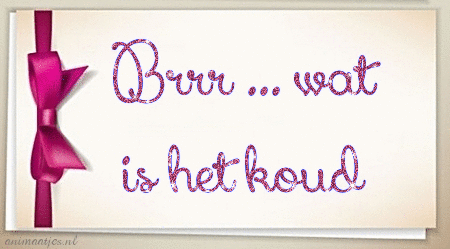 Brrr ... wat
is het koud
animaatjes.nl